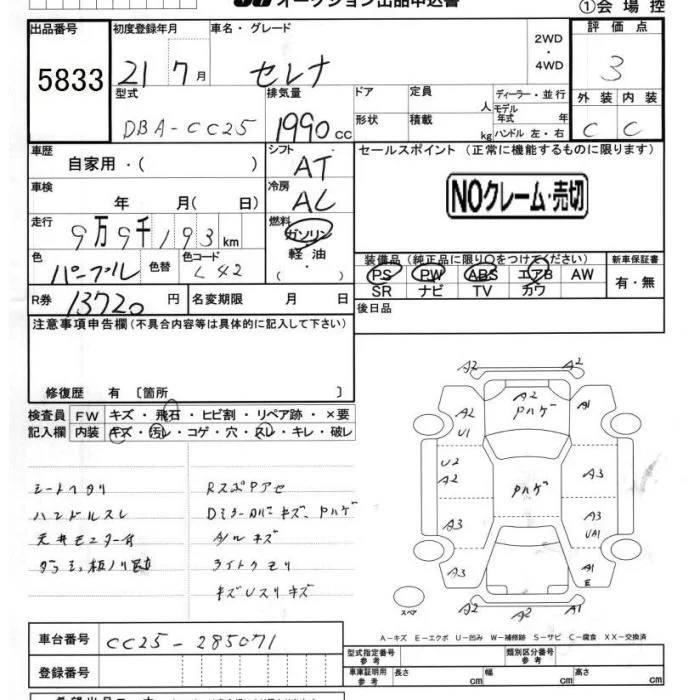 オークション出品申込書
①会場控
出品番号 初度登録年月 車名・グレード 評価点
5833 21 7月 セレナ 2WD・4WD 3
型式 排気量 ドア 定員 人 ディーラー・並行 外装 内装
DBA-CC25 1990cc 形状 積載 kg モデル年式 年 ハンドル 左・右 C C
車歴 自家用・( ) シフト AT セールスポイント (正常に機能するものに限ります)
車検 年 月( 日) 冷房 AC NOクレーム・売切
走行 9万9千193km 燃料 ガソリン 軽油 ・( )
装備品(純正品に限り○をつけてください) 新車保証書
色 パープル 色替 色コード L42 PS PW ABS エアB AW 有・無
SR ナビ TV カワ
R券 13720円 名変期限 月 日 後日品
注意事項申告欄(不具合内容等は具体的に記入して下さい)
修復歴 有 〔箇所 〕
検査員 FW キズ・飛石・ヒビ割・リペア跡・×要
記入欄 内装 キズ・汚レ・コゲ・穴・スレ・キレ・破レ
シートヘタリ RスポPアセ
ハンドルスレ Dミラーカバーキズ、Pハゲ
天井モニター付 A/Wキズ
ライトクモリ
キズUスリキズ
A2 A2
A2 A2 Pハゲ A1
U1
U2
A2 Pハゲ A3
A3 A3
UA1
A3 A1
E
スペア A2 A2 A1
A-キズ E-エクボ U-凹み W-補修跡 S-サビ C-腐食 XX-交換済
車台番号 CC25-285071
型式指定番号 参考 類別区分番号 参考
登録番号 車庫証明用 参考 長さ cm 幅 cm 高さ cm